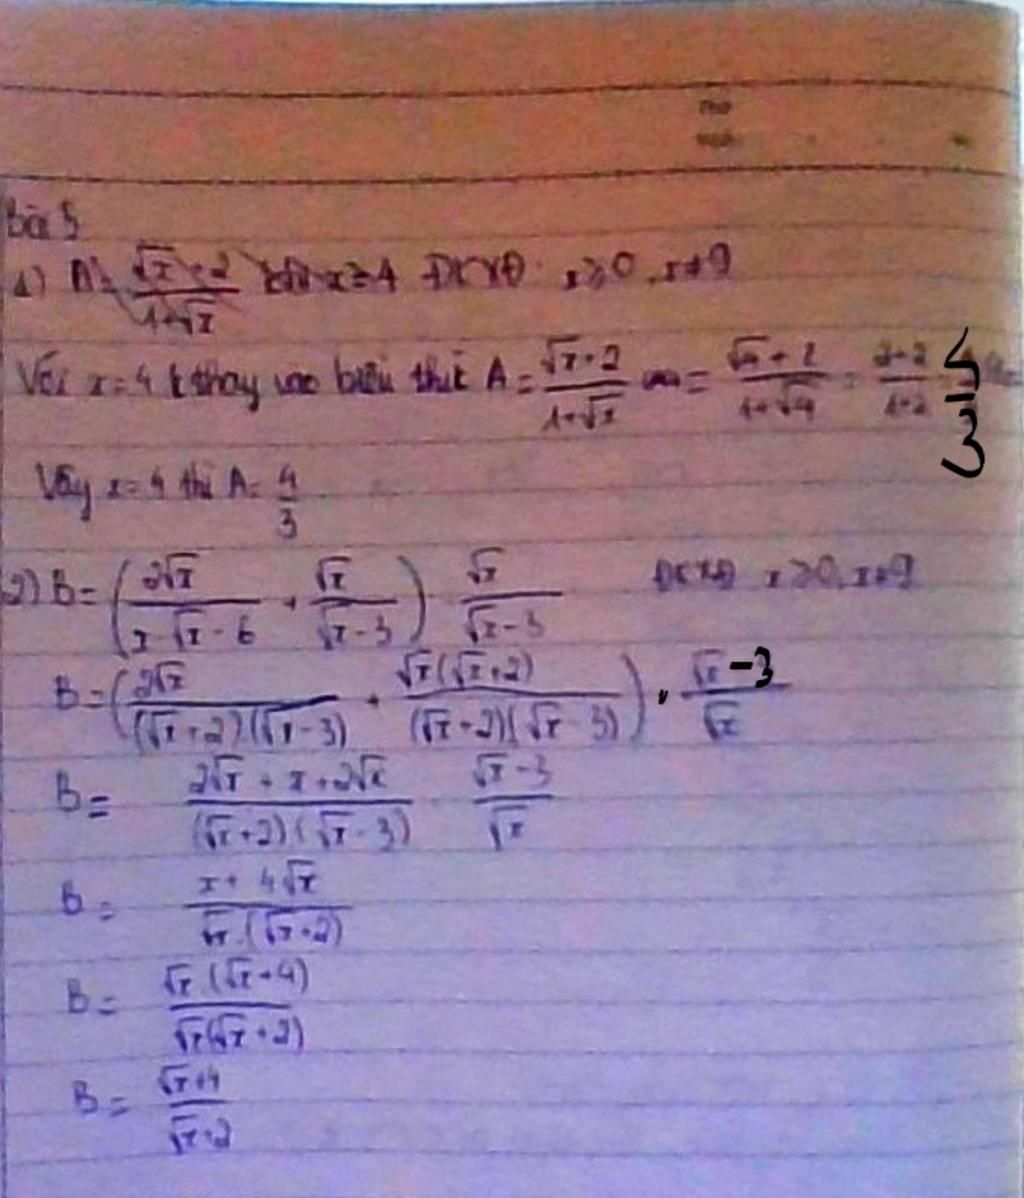 Bài 5
1) A = \frac{\sqrt{x}+2}{1+\sqrt{x}} khi x = 4 ĐKXĐ: x ≥ 0, x ≠ 9
Với x = 4 thay vào biểu thức A = \frac{\sqrt{x}+2}{1+\sqrt{x}} = \frac{\sqrt{4}+2}{1+\sqrt{4}} = \frac{2+2}{1+2} \frac{4}{3}
Vậy x = 4 thì A = \frac{4}{3}
2) B = (\frac{2\sqrt{x}}{x-\sqrt{x}-6} + \frac{\sqrt{x}}{\sqrt{x}-3}) \frac{\sqrt{x}}{\sqrt{x}-3} ĐKXĐ x ≥ 0, x ≠ 9
B = (\frac{2\sqrt{x}}{(\sqrt{x}+2)(\sqrt{x}-3)} + \frac{\sqrt{x}(\sqrt{x}+2)}{(\sqrt{x}+2)(\sqrt{x}-3)}) . \frac{\sqrt{x}-3}{\sqrt{x}}
B = \frac{2\sqrt{x}+x+2\sqrt{x}}{(\sqrt{x}+2)(\sqrt{x}-3)} . \frac{\sqrt{x}-3}{\sqrt{x}}
B = \frac{x+4\sqrt{x}}{\sqrt{x}.(\sqrt{x}+2)}
B = \frac{\sqrt{x}(\sqrt{x}+4)}{\sqrt{x}(\sqrt{x}+2)}
B = \frac{\sqrt{x}+4}{\sqrt{x}+2}